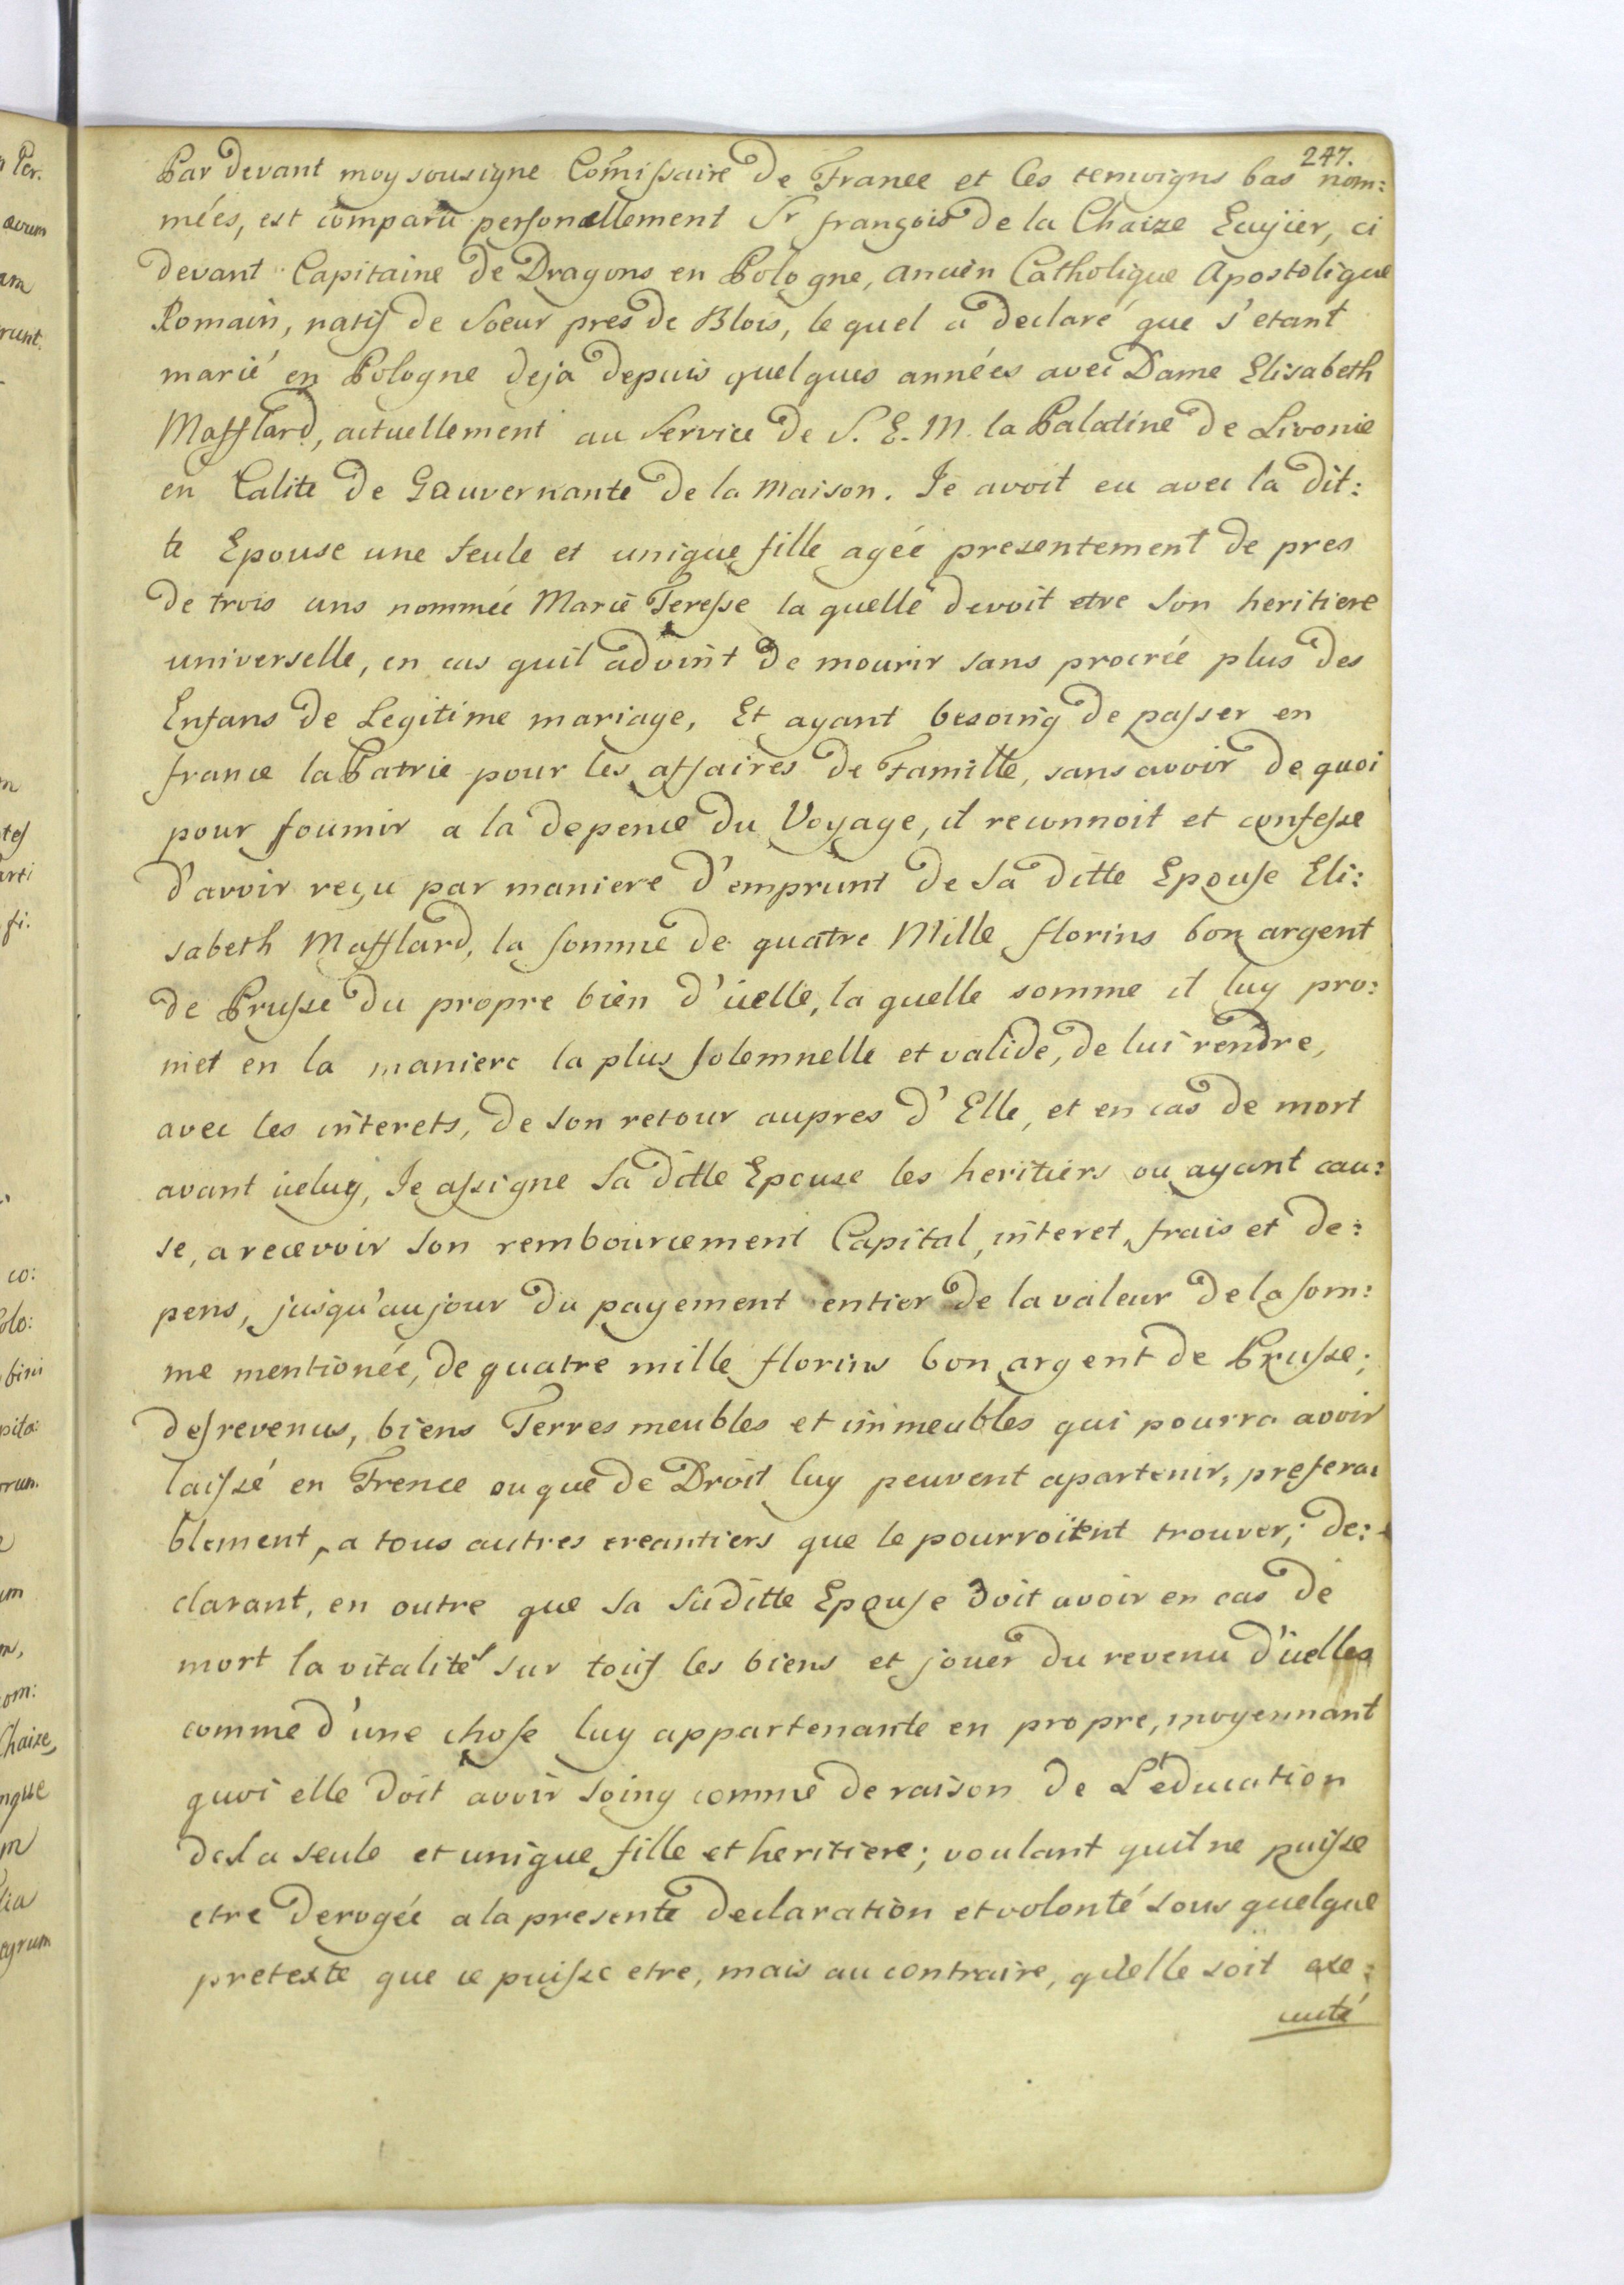 247.
Par devant moy sousigne Comissaire de France et les temoigns bas nom:
mées, est comparu personellement Sr françois de la Chaize Ecujier, ci
devant Capitaine de Dragons en Pologne, ancien Catholique Apostolique
Romain, natif de Soeur pres de Blois, le quel a declaré que s'etant
marié en Pologne deja depuis quelques années avec Dame Elisabeth
Mafflard, actuellement au Service de S. E. M. la Palatine de Livonie
en Calite de Gauvernante de la Maison. Je avoit eu avec la dit:
te Epouse une Seule et unique fille agée presentement de pres
de trois ans nommée Marie Teresse la quelle devoit etre Son heritiere
universelle, en cas quil advint de mourir sans procréé plus des
Enfans de Legitime mariage, Et ayant besoing de passer en
france la Patrie pour les affaires de Famille, sans avoir de quoi
pour fournir a la depence du Voyage, il reconnoit et confesse
d'avoir reçu par maniere d'emprunt de Sa ditte Epouse Eli:
sabeth Mafflard, la somme de quatre Mille florins bon argent
de Prusse du propre bien d'icelle, la quelle somme il luy pro:
met en la maniere la plus solemnelle et valide, de lui rendre,
avec les interets, de son retour aupres d'Elle, et en cas de mort
avant iceluy, Je assigne Sa ditte Epouse les heritiers ou ayant cau:
se, a recevoir Son rembourcement Capital, interet, frais et de:
pens, jusqu'au jour du payement entier de la valeur de la som:
me mentionée, de quatre mille florins bon argent de Prusse;
des revenus, biens Terres meubles et immeubles qui pourra avoir
laissé en Frence ou que de Droit luy peuvent apartenir, prefera:
blement, a tous autres creantiers que le pourroient trouver; de:
clarant, en outre que sa Suditte Epouse doit avoir en cas de
mort la vitalité sur tous les biens et jouer du revenu d'icelles
comme d'une chose luy appartenante en propre, moyennant
quoi elle doit avoir soing comme de raison de L'education
de la seule et unique fille et heritiere; voulant quil ne puisse
etre derogée a la presente declaration et volonté sous quelque
pretexte que ce puisse etre, mais au contraire, qu'elle soit exe:
cuté